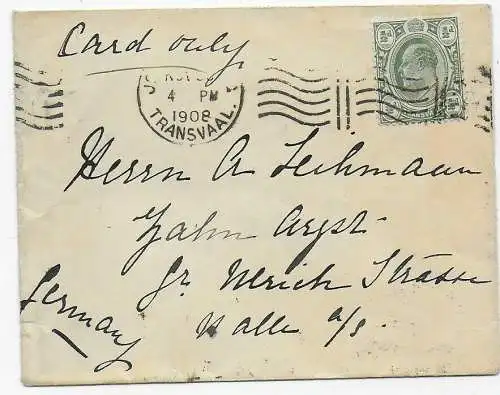 Card only
4 PM
1908
TRANSVAAL.
½d ½d
Herrn A Leihmann
Zahn Arzt
Gr Ulrich Strasse
Halle a/s.
Germany